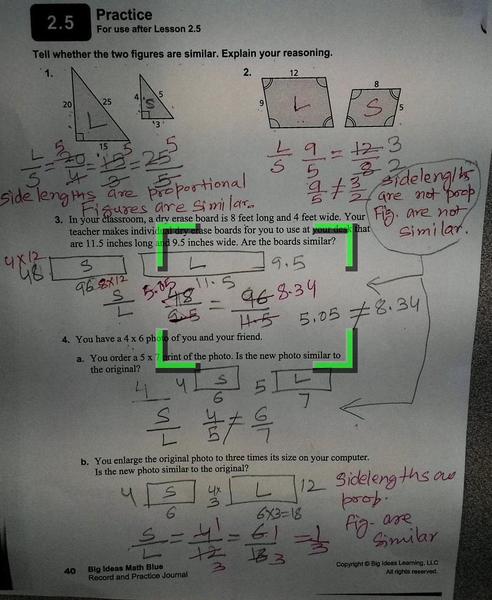 2.5
Practice
For use after Lesson 2.5
Tell whether the two figures are similar. Explain your reasoning.
1.
20
25
L
15
4
5
S
3
2.
12
9
L
8
S
5
L/S = 20/4 = 15/3 = 25/5
5 5 5
Sidelengths are proportional
Figures are Similar.
L/S 9/5 = 12/8 3/2
9/5 ≠ 3/2
Sidelengths
are not prop
Fig. are not
Similar.
3. In your classroom, a dry erase board is 8 feet long and 4 feet wide. Your
teacher makes individual dry erase boards for you to use at your desk that
are 11.5 inches long and 9.5 inches wide. Are the boards similar?
4x12
48
S
96 8x12
L
9.5
11.5
S/L 5.05 48/9.5 = 96/11.5 8.34
5.05 ≠ 8.34
4. You have a 4 x 6 photo of you and your friend.
a. You order a 5 x 7 print of the photo. Is the new photo similar to
the original?
4
4
S
6
5
L
7
S/L 4/5 ≠ 6/7
b. You enlarge the original photo to three times its size on your computer.
Is the new photo similar to the original?
4
S
6
4x
3
L
12
6x3=18
Sidelengths are
prop.
Fig. are
Similar
S/L = 4/12 1/3 = 6/18 1/3 = 1/3
40
Big Ideas Math Blue
Record and Practice Journal
Copyright © Big Ideas Learning, LLC
All rights reserved.